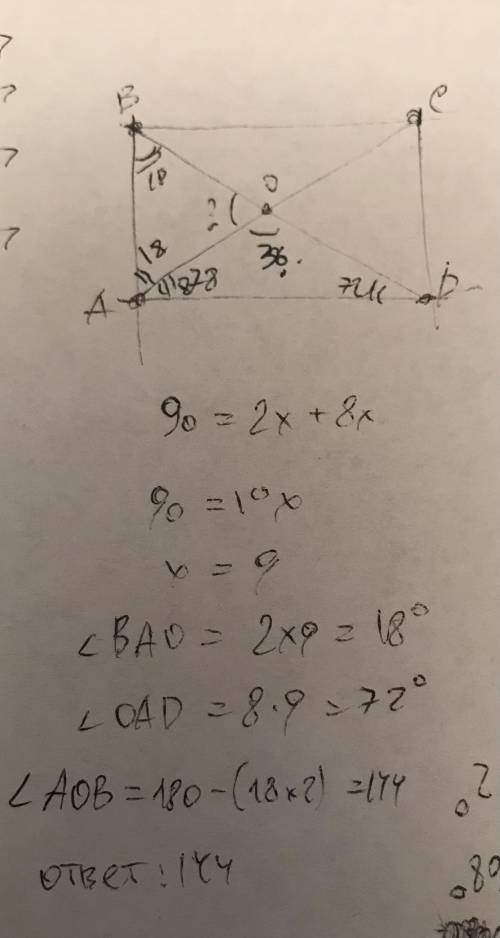 B
C
18
O
?
18
36.
78
72
A
D
90 = 2x + 8x
90 = 10x
x = 9
∠BAO = 2×9 = 18°
∠OAD = 8·9 = 72°
∠AOB = 180 - (18×2) = 144
ответ: 144